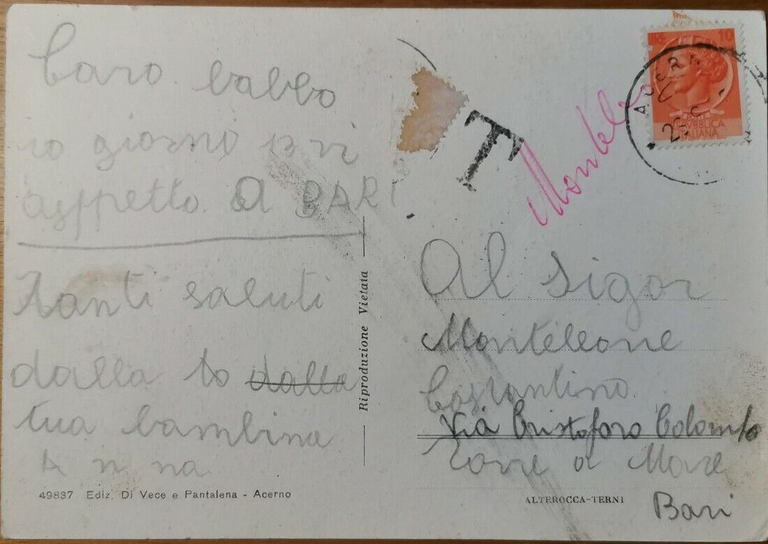 Caro babbo
io giorno 13 vi
aspetto A BARI
Tanti saluti
dalla to dalla
tua bambina
Anna
49837 Ediz. Di Vece e Pantalena - Acerno
Riproduzione Vietata
T
Montele
10
REPUBBLICA
ITALIANA
Al Sigor
Monteleone
Costantino
Via Cristoforo Colombo
Torre a Mare
Bari
ALTEROCCA-TERNI